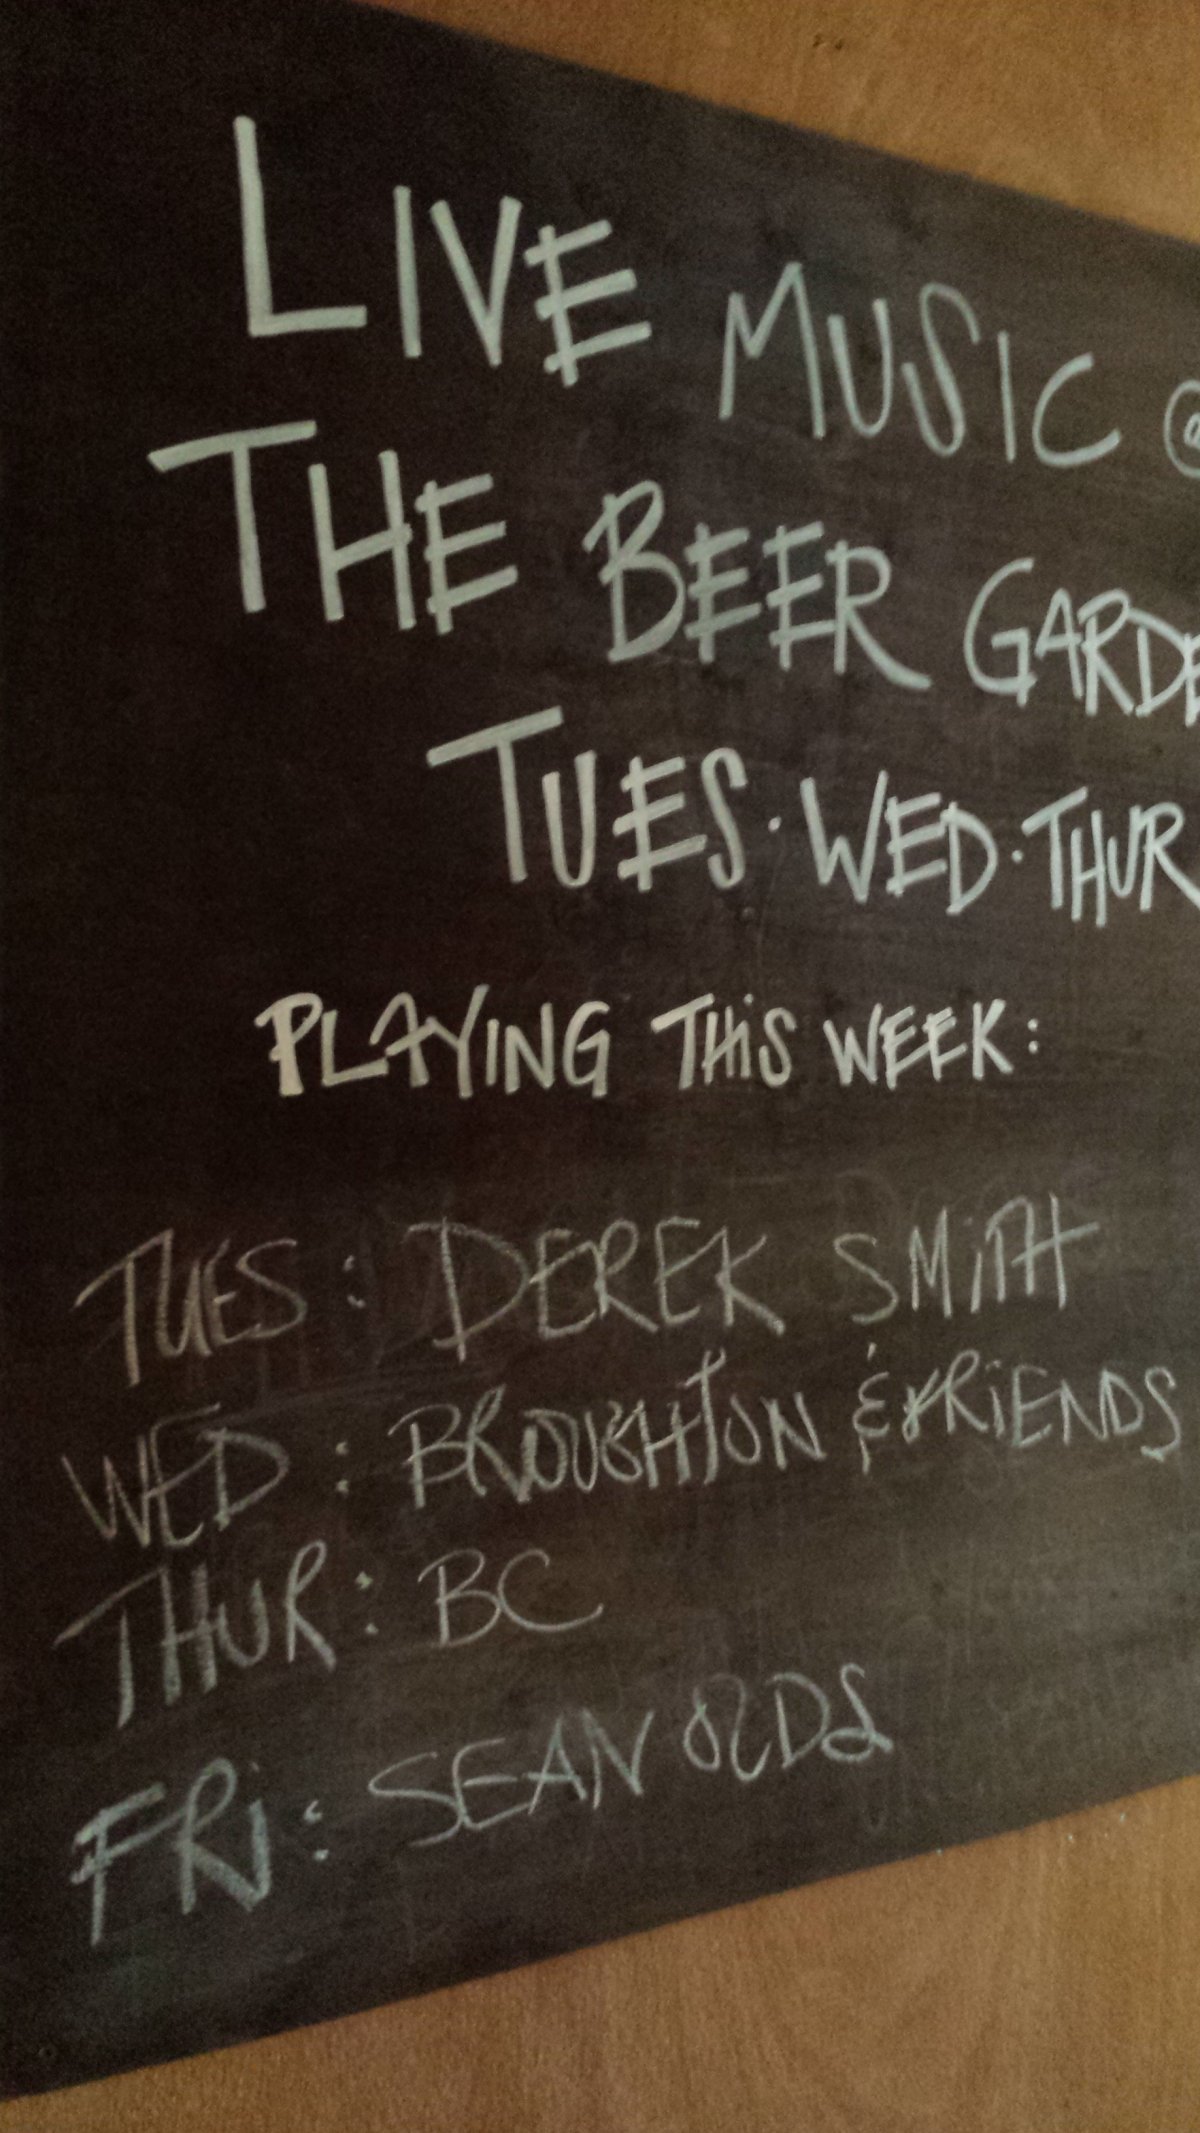 LIVE MUSIC @
THE BEER GARDE
TUES · WED · THUR
PLAYING THiS WEEK:
TUES: DEREK SMiTH
WED: BROUGHTON & FRiENDS
THUR: BC
FRi: SEAN OLDS